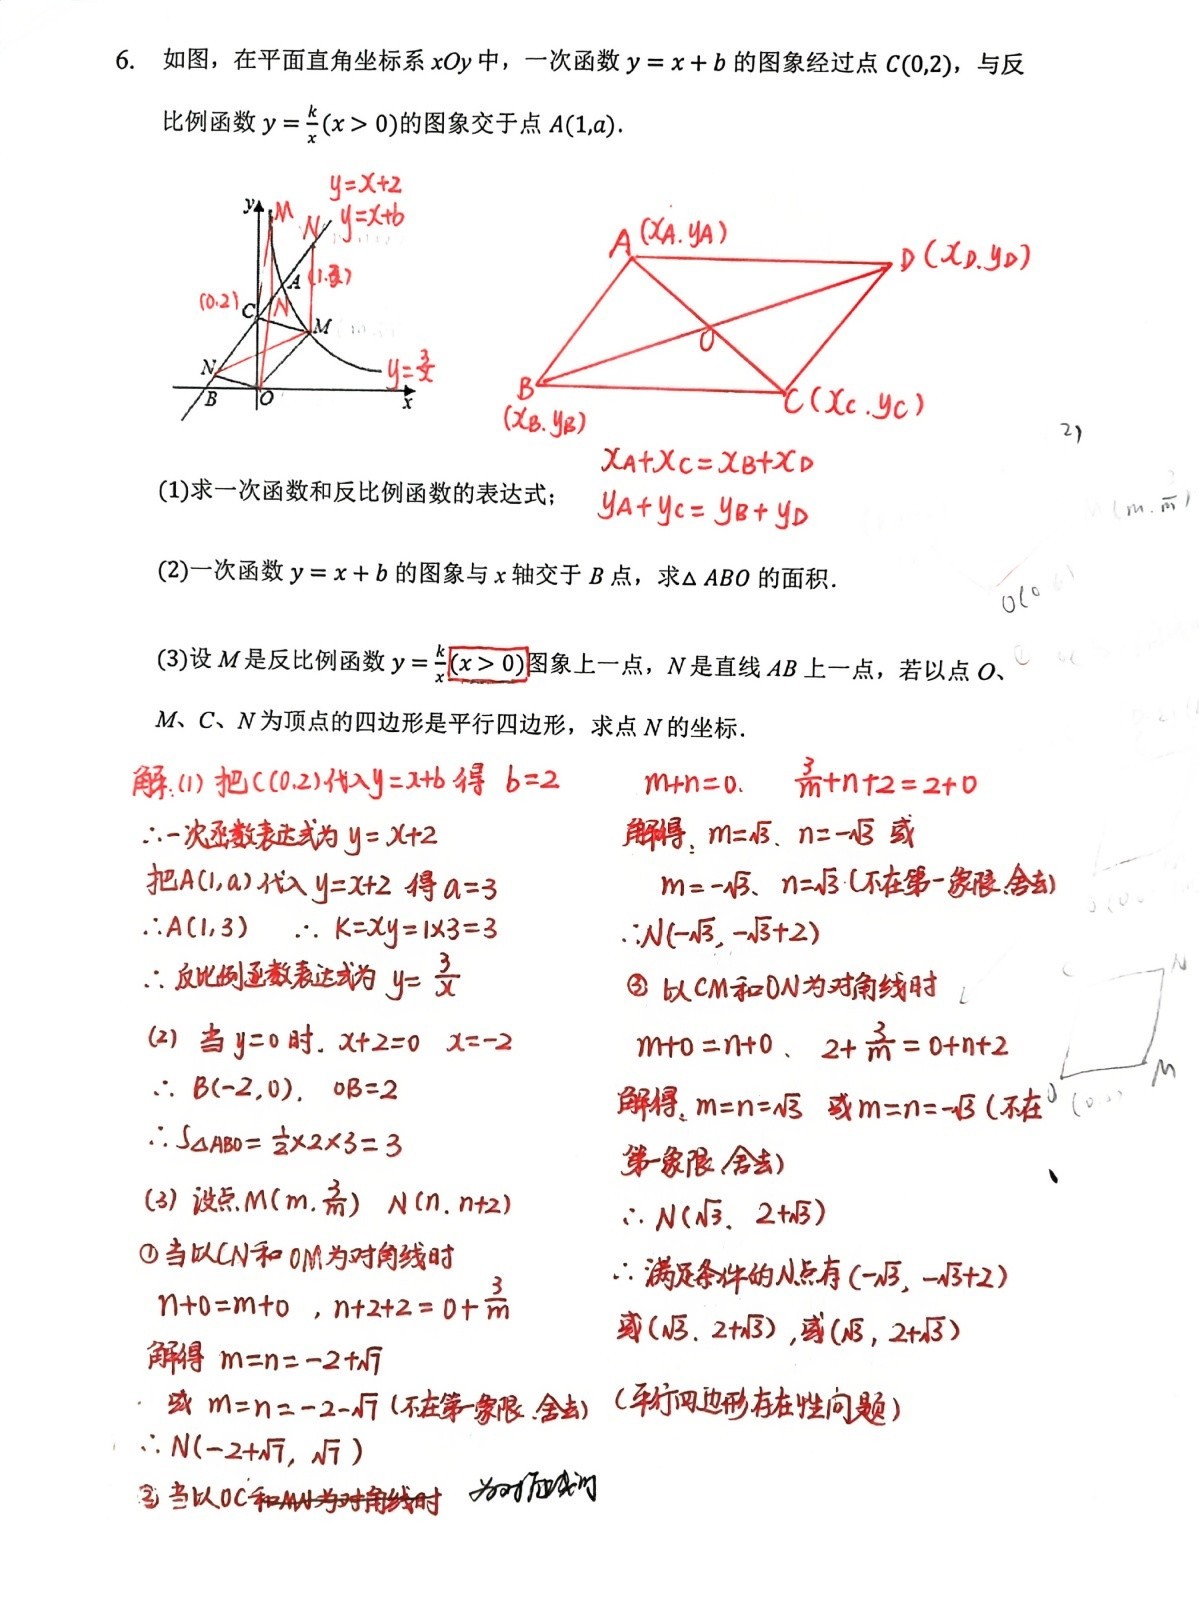 6. 如图，在平面直角坐标系 xOy 中，一次函数 y = x + b 的图象经过点 C(0,2)，与反
比例函数 y = k/x (x > 0)的图象交于点 A(1,a).
y=x+2
y M N y=x+b
A (x_A.y_A)
D (x_D.y_D)
A (1.3)
(0.2) C N
M
O
N
y=3/x
B O x
B
(x_B.y_B)
C (x_C.y_C)
x_A+x_C=x_B+x_D
(1)求一次函数和反比例函数的表达式；
y_A+y_C=y_B+y_D
2)
(m.
(2)一次函数 y = x + b 的图象与 x 轴交于 B 点，求△ ABO 的面积.
(3)设 M 是反比例函数 y = k/x (x > 0)图象上一点，N 是直线 AB 上一点，若以点 O、
M、C、N 为顶点的四边形是平行四边形，求点 N 的坐标.
解:(1) 把C(0.2)代入y=x+b得 b=2
∴一次函数表达式为 y=x+2
把A(1,a)代入 y=x+2 得 a=3
∴A(1,3) ∴ K=xy=1×3=3
∴ 反比例函数表达式为 y=3/x
(2) 当 y=0 时. x+2=0 x=-2
∴ B(-2,0). OB=2
∴S△ABO=1/2×2×3=3
(3) 设点M(m.3/m) N(n.n+2)
① 当以CN和OM为对角线时
n+0=m+0 , n+2+2=0+3/m
解得 m=n=-2+√7
或 m=n=-2-√7 (不在第一象限.舍去)
∴N(-2+√7, √7)
② 当以OC和MN为对角线时 为对角线时
m+n=0. 3/m+n+2=2+0
解得. m=√3、n=-√3 或
m=-√3、n=√3 (不在第一象限.舍去)
∴N(-√3, -√3+2)
③ 以CM和ON为对角线时
m+0=n+0、 2+3/m=0+n+2
解得. m=n=√3 或m=n=-√3 (不在
第一象限、舍去)
∴ N(√3、2+√3)
∴ 满足条件的N点有 (-√3, -√3+2)
或(√3. 2+√3) ,或(√3, 2+√3)
(平行四边形存在性问题)
N
O
M